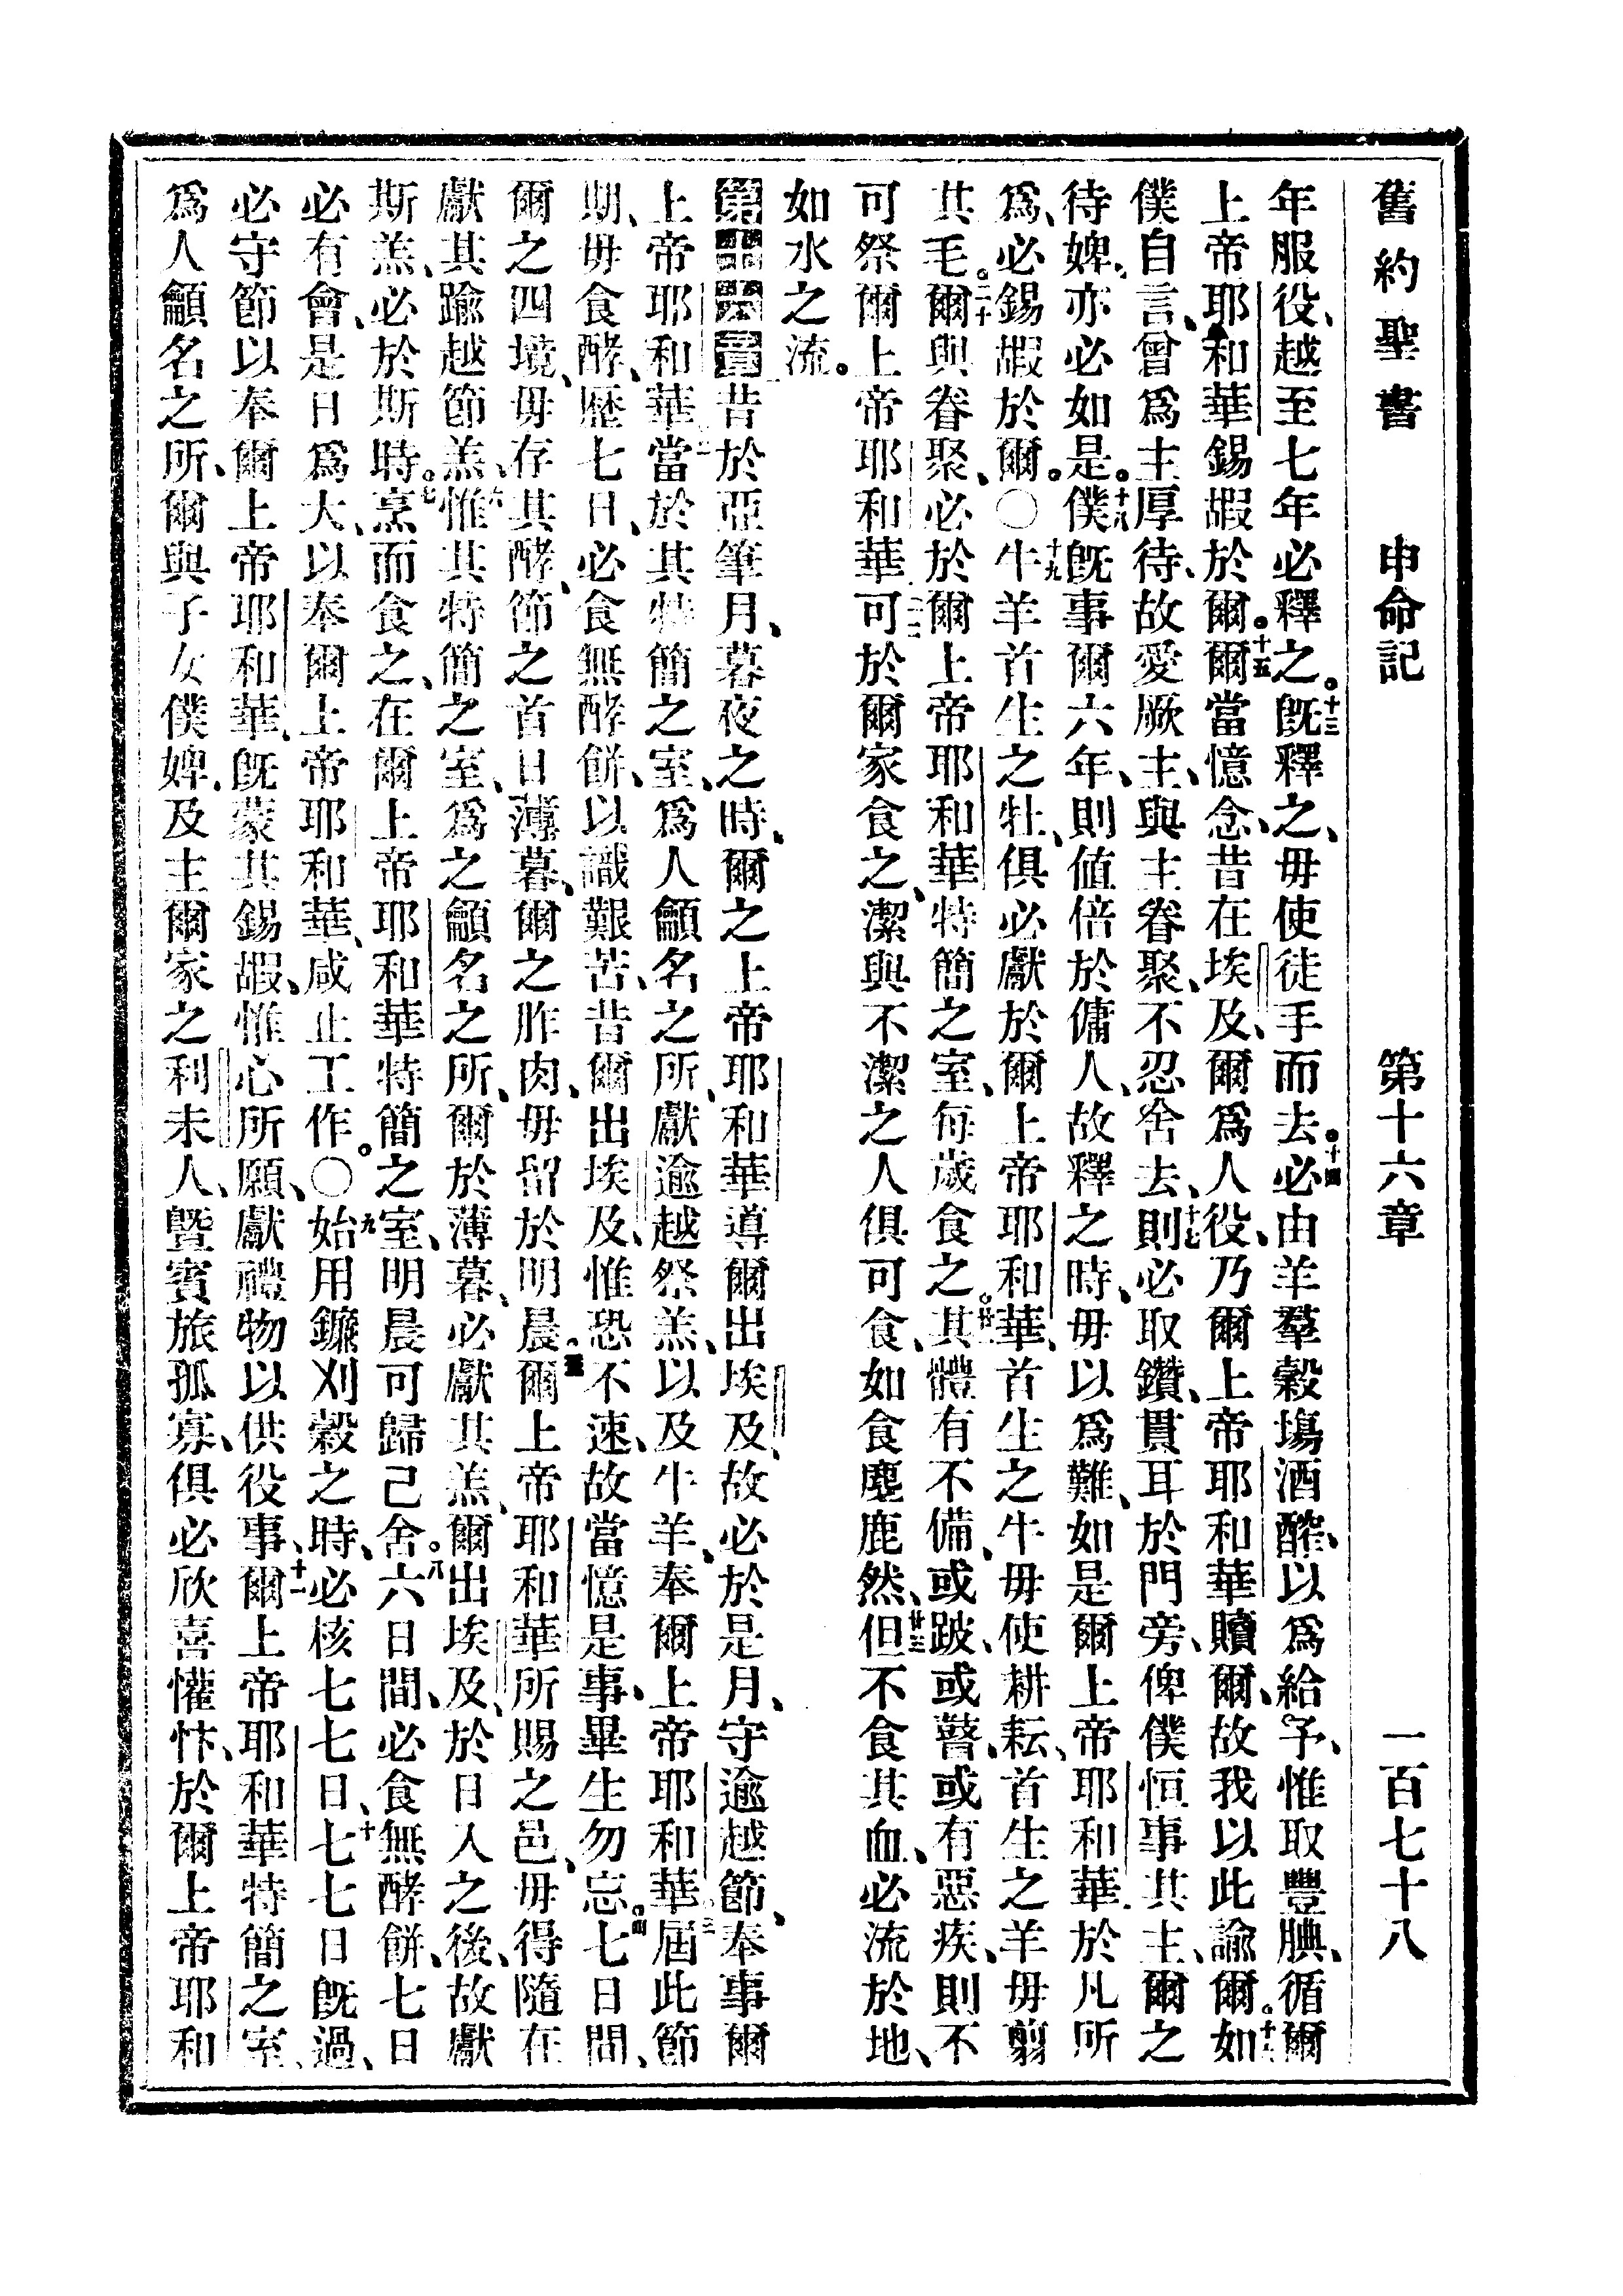 舊約聖書 申命記 第十六章 一百七十八
年服役、越至七年必釋之。十三既釋之、毋使徒手而去。十四必由羊羣穀塲酒醡、以爲給予、惟取豐腆、循爾
上帝耶和華錫嘏於爾。十五爾當憶念、昔在埃及、爾爲人役、乃爾上帝耶和華贖爾、故我以此諭爾。十六如
僕自言、曾爲主厚待、故愛厥主、與主眷聚、不忍舍去、十七則必取鑽、貫耳於門旁、俾僕恒事其主、爾之
待婢、亦必如是。十八僕既事爾六年、則值倍於傭人、故釋之時、毋以爲難、如是爾上帝耶和華於凡所
爲、必錫嘏於爾。〇十九牛羊首生之牡、俱必獻於爾上帝耶和華、首生之牛毋使耕耘、首生之羊毋翦
其毛。二十爾與眷聚、必於爾上帝耶和華特簡之室、每歲食之。廿一其體有不備、或跛、或瞽、或有惡疾、則不
可祭爾上帝耶和華、可於爾家食之、潔與不潔之人俱可食、如食麈鹿然、廿三但不食其血、必流於地、
如水之流。
第十六章 昔於亞筆月、暮夜之時、爾之上帝耶和華導爾出埃及、故必於是月、守逾越節、奉事爾
上帝耶和華、二當於其特簡之室、爲人籲名之所、獻逾越祭羔、以及牛羊、奉爾上帝耶和華、三屆此節
期、毋食酵、歷七日、必食無酵餅、以識艱苦、昔爾出埃及、惟恐不速、故當憶是事、畢生勿忘。四七日間、
爾之四境、毋存其酵、節之首日薄暮、爾之胙肉、毋留於明晨。五爾上帝耶和華所賜之邑、毋得隨在
獻其踰越節羔、六惟其特簡之室、爲之籲名之所、爾於薄暮、必獻其羔、爾出埃及、於日入之後、故獻
斯羔、必於斯時。七烹而食之、在爾上帝耶和華特簡之室、明晨可歸己舍。八六日間、必食無酵餅、七日
必有會、是日爲大、以奉爾上帝耶和華、咸止工作。〇九始用鐮刈穀之時、必核七七日、十七七日既過、
必守節以奉爾上帝耶和華、既蒙其錫嘏、惟心所願、獻禮物以供役事、十一爾上帝耶和華特簡之室、
爲人籲名之所、爾與子女僕婢、及主爾家之利未人、曁賓旅孤寡、俱必欣喜懽忭、於爾上帝耶和